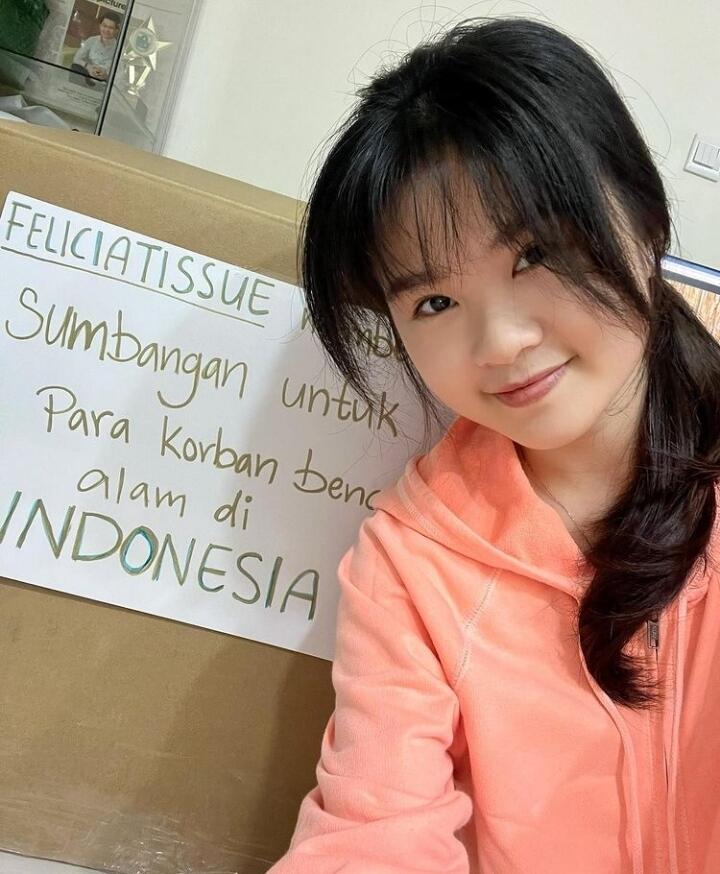 FELICIATISSUE
Sumbangan untuk
Para korban benc
alam di
INDONESIA